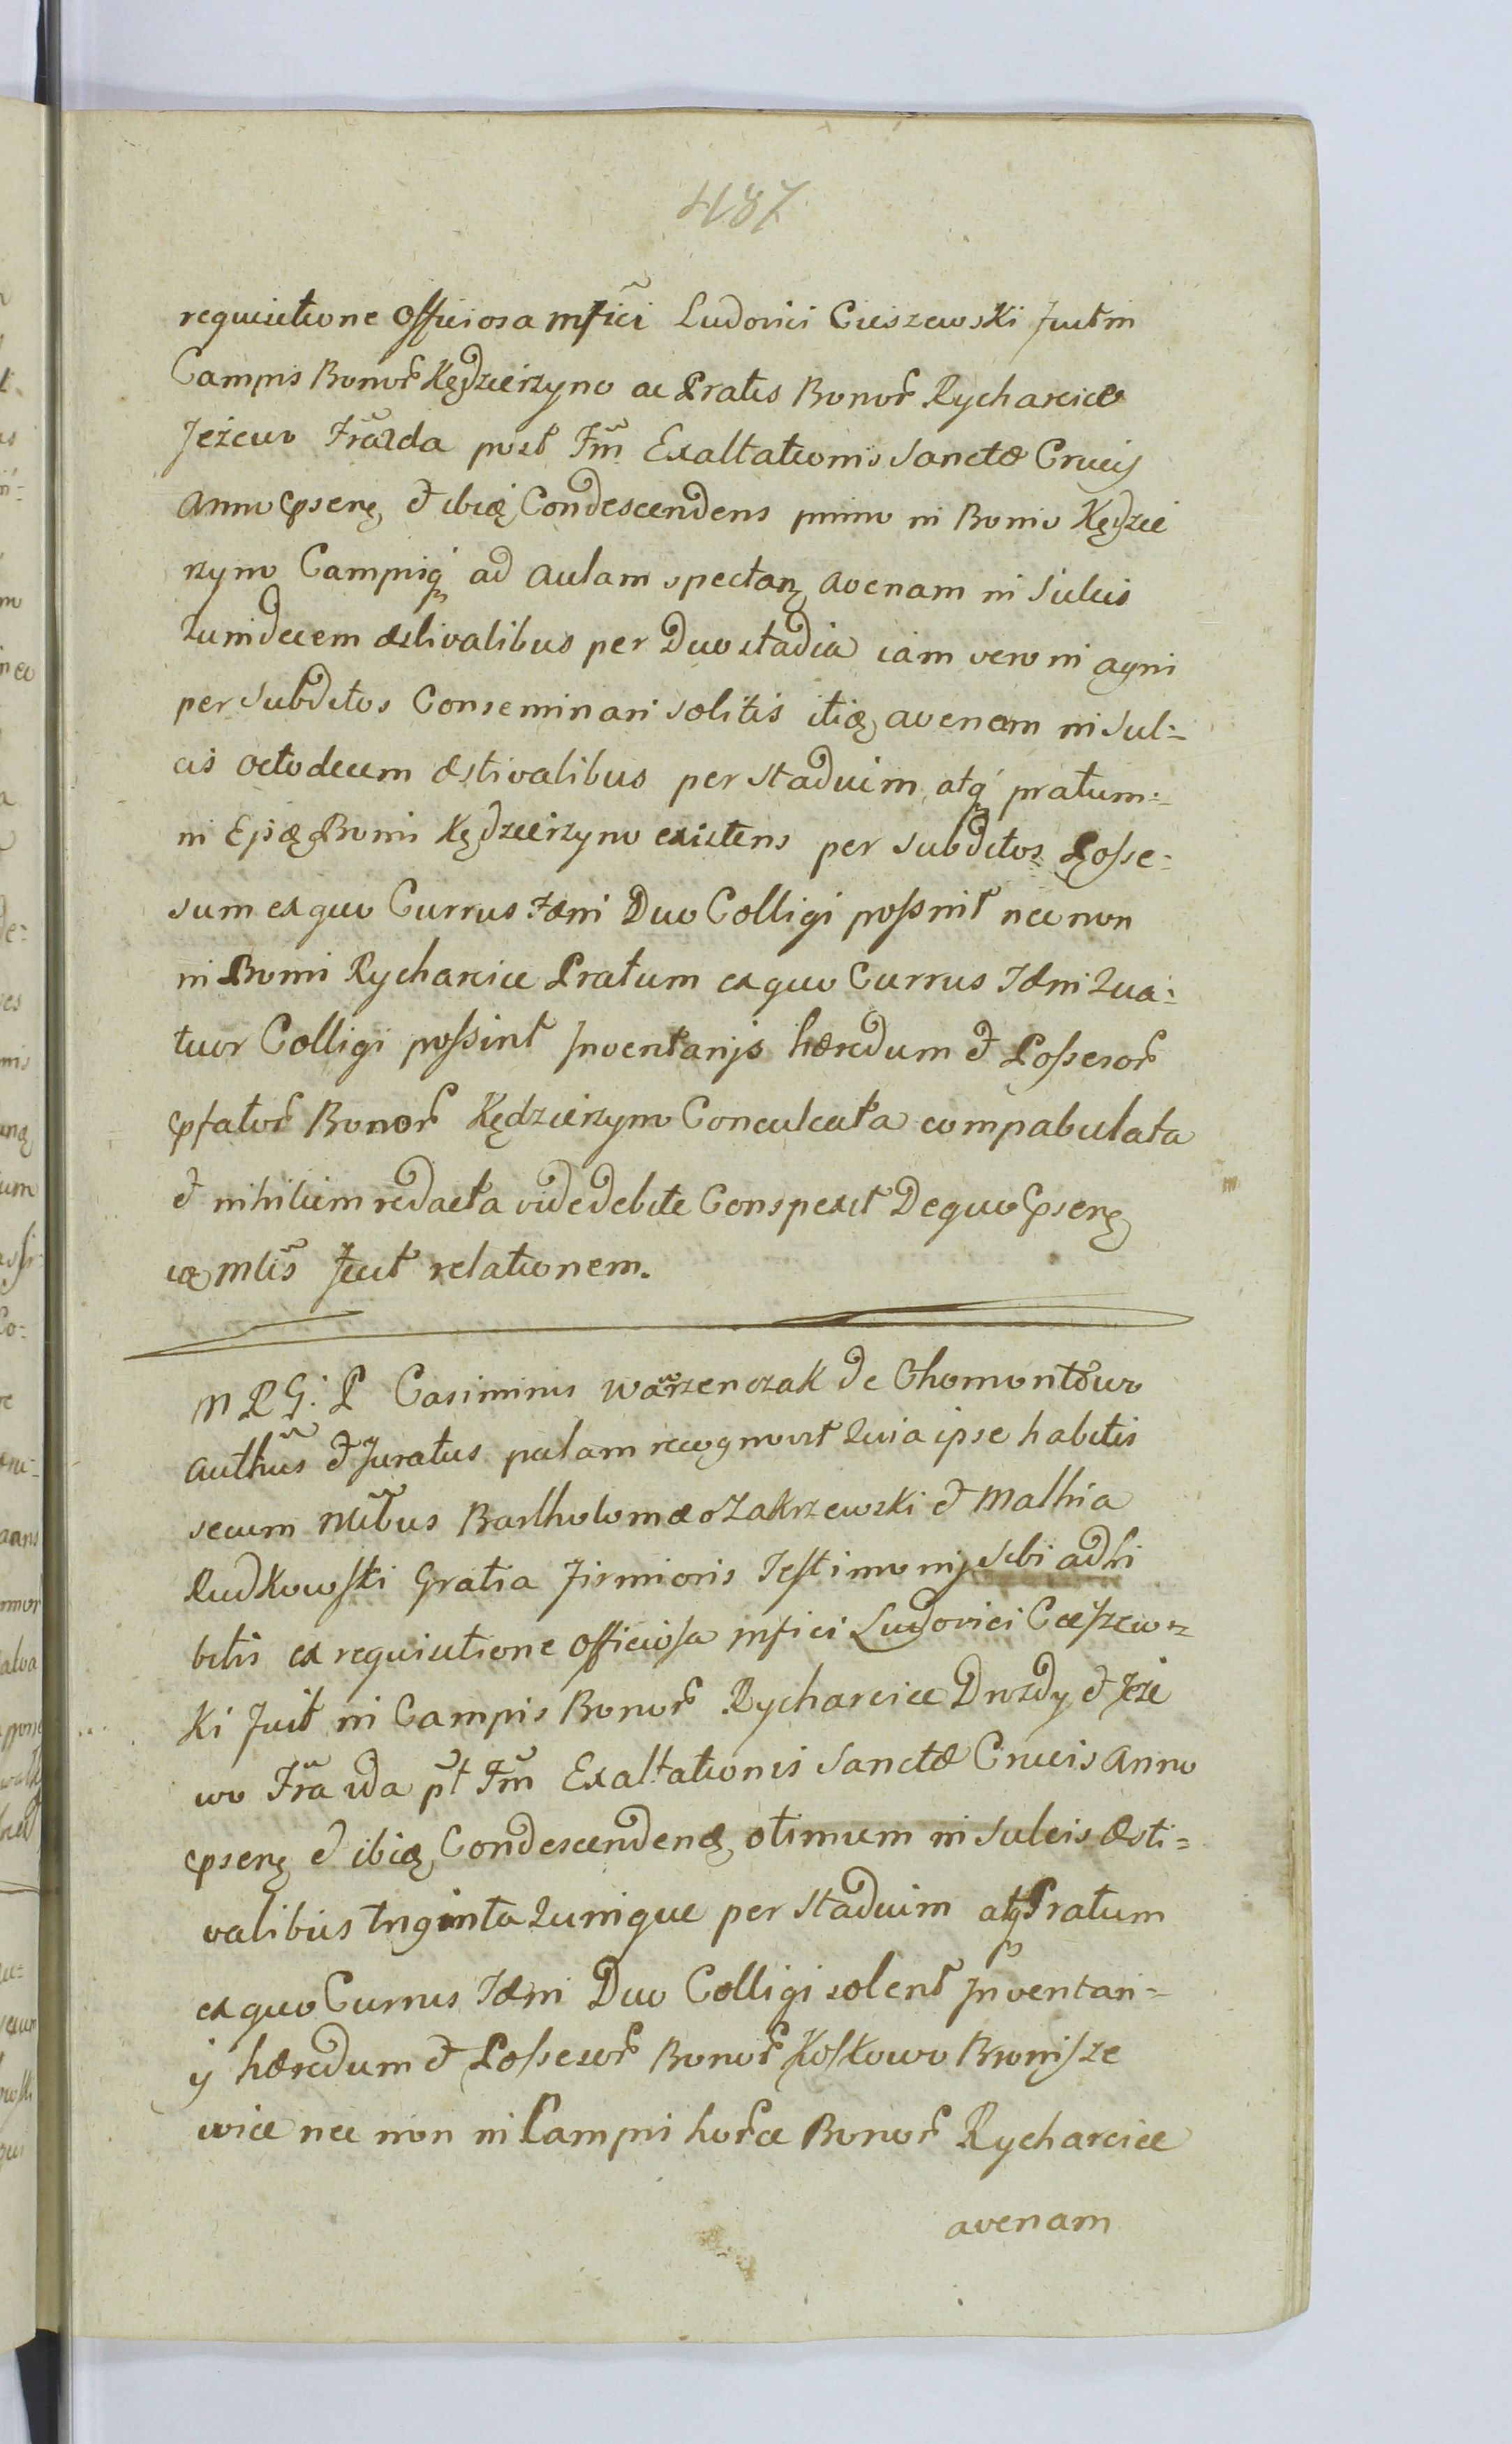 487
requisitione Officiosa mfici Ludovici Cieszewski Fuit in
Campis Bonor Kędzierzyno ac Pratis Bonor Rycharcice
Jeżewo Fra 2da post Fm Exaltationis Sanctæ Crucis
Anno pseñ et ibiq Condescendens primo in Bonis Kędzie
rzyno Campisq ad Aulam spectan avenam in Sulcis
Quindecem æstivalibus per Duo stadia iam vero in agri
per Subditos Conseminari solitis itiq avenam in Sul=
cis octodecem æstivalibus per Stadium atq pratum=
in Bonis Kędzierzyno existens per Subditos Posse=
sum ex quo Currus Fæni Duo Colligi possint nec non
in Bonis Rycharcice Pratum ex quo Currus Fæni Qua=
tuor Colligi possint Inventarijs hæredum et Possesor
pfator Bonor Kędzierzyno Conculcata compabulata
et nihilum redacta vide debite Conspexit De quo pseñ
Fecit relationem.
M R G: P Casimirus Warzenczak de Chomontowo
Authus et Juratus palam recognovit Quia ipse habitis
secum Nlibus Bartholomæo Zakrzewski et Mathia
Rudkowski Gratia firmioris Testimonij Sibi adhi
bitis ex requisitione Officiosa mfici Ludovici Cieszews=
ki Fuit in Campis Bonor Rycharcice Drozdy et Jeże
wo Fra 2da pt Fm Exaltationis Sanctæ Crucis Anno
pseñ et ibiq Condescenden otimum in Sulcis æsti=
valibus triginta Quinque per Stadium atq Pratum
ex quo Currus Fæni Duo Colligi solent Inventari=
ij hæredum et Possesor Bonor Koskowo Bronisze
wice nec non in Campis horce Bonor Rycharcice
avenam